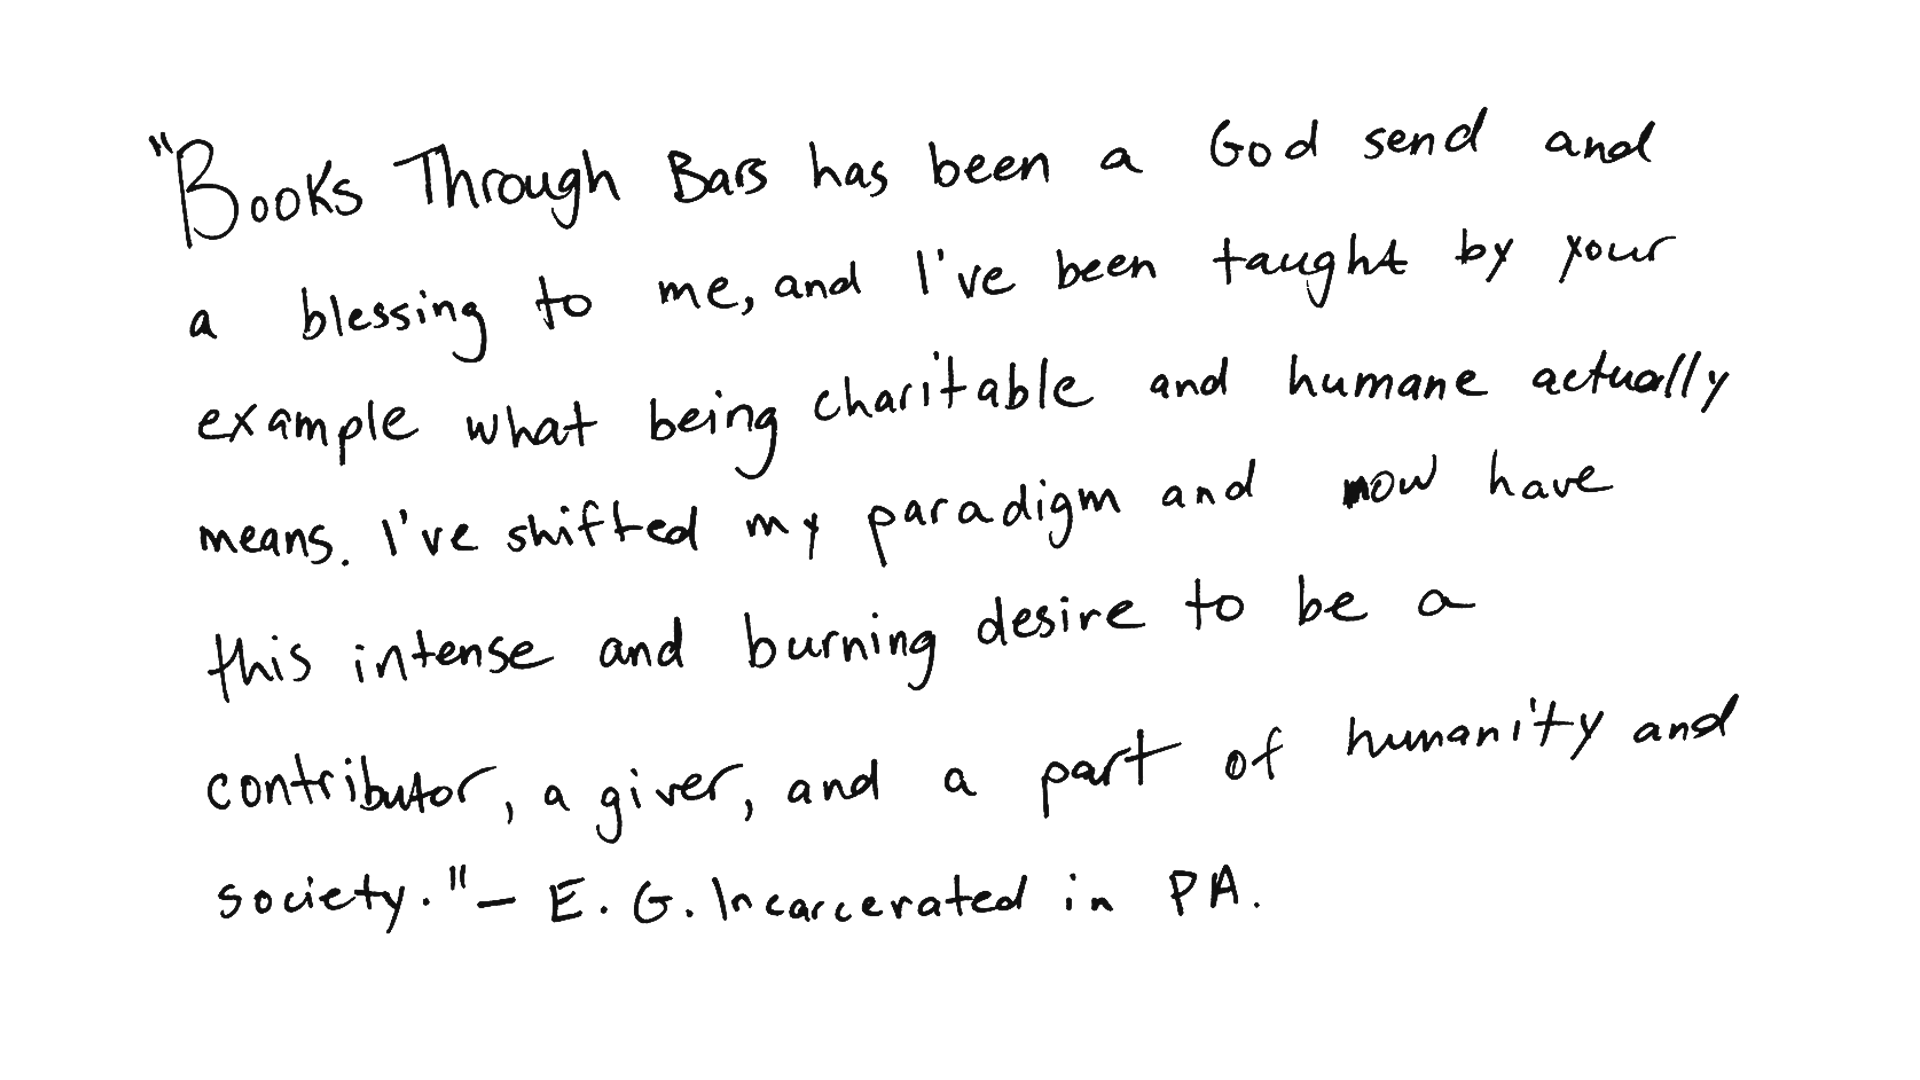 "Books Through Bars has been a God send and
a blessing to me, and I've been taught by your
example what being charitable and humane actually
means. I've shifted my paradigm and now have
this intense and burning desire to be a
contributor, a giver, and a part of humanity and
society." - E. G. Incarcerated in PA.